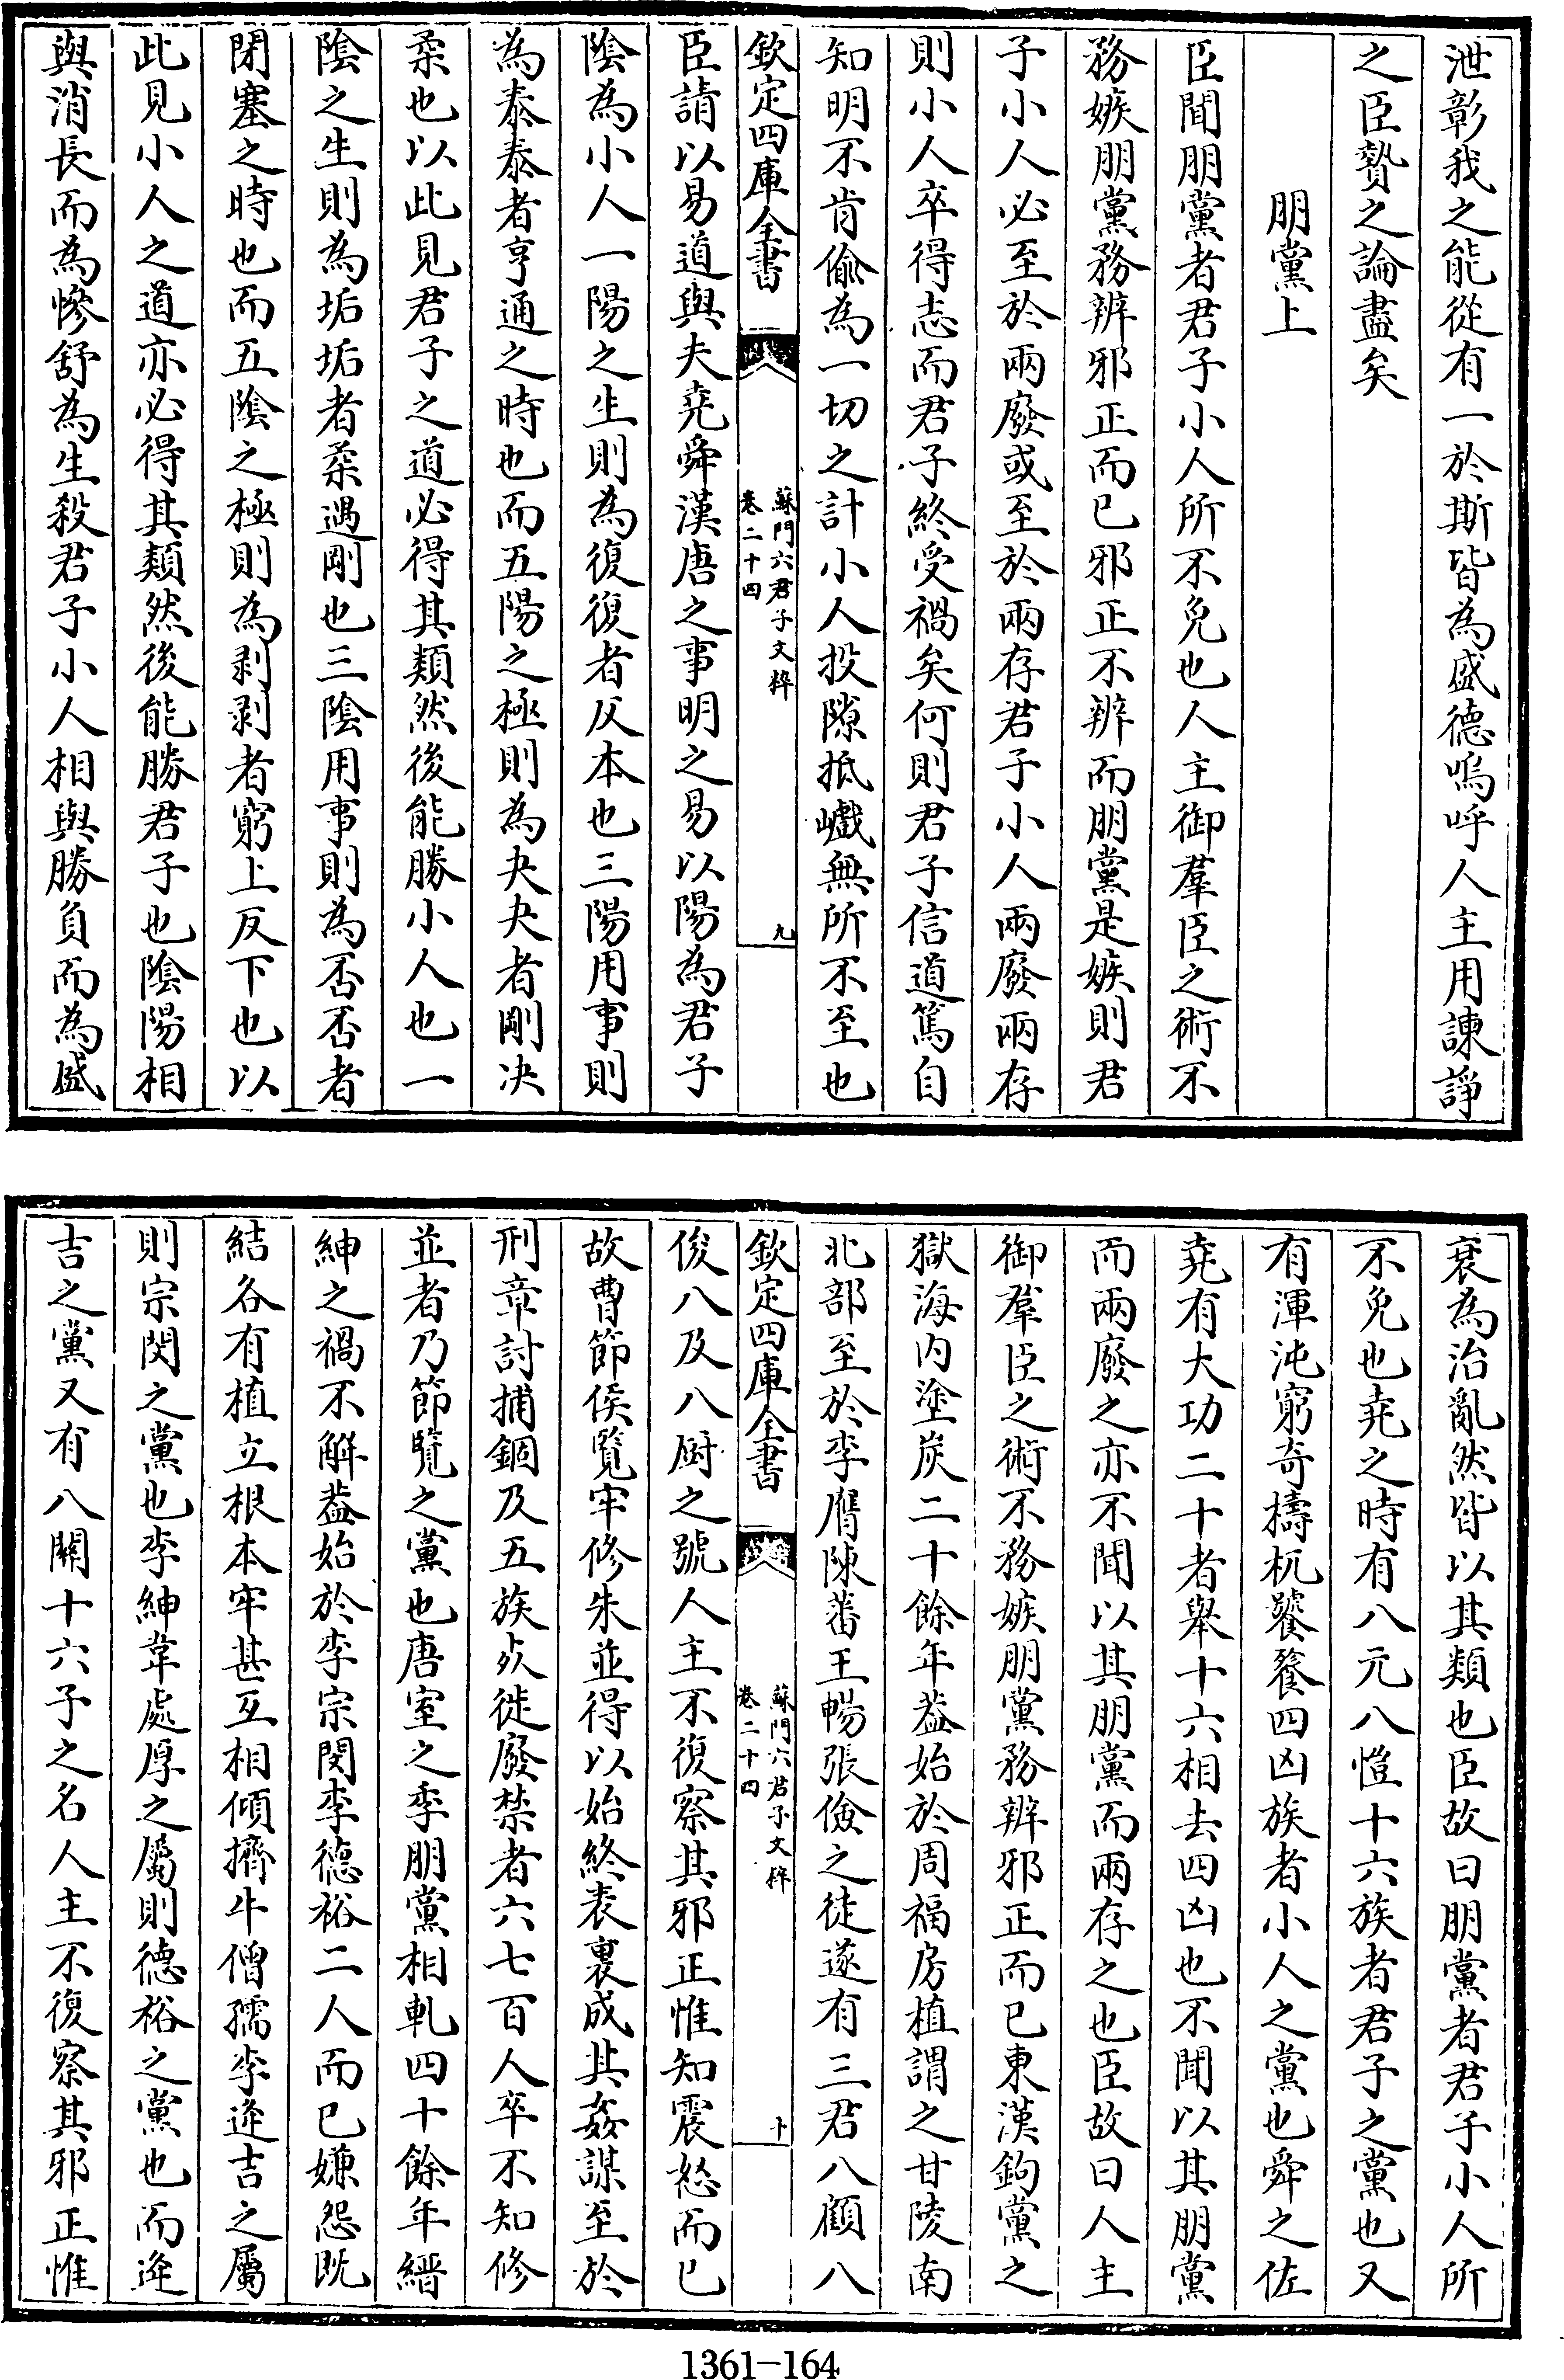 泄彰我之能從有一於斯皆為盛德嗚呼人主用諫諍
之臣贄之論盡矣
朋黨上
臣聞朋黨者君子小人所不免也人主御羣臣之術不
務嫉朋黨務辨邪正而已邪正不辨而朋黨是嫉則君
子小人必至於兩廢或至於兩存君子小人兩廢兩存
則小人卒得志而君子終受禍矣何則君子信道篤自
知明不肯偷為一切之計小人投隙抵巇無所不至也
欽定四庫全書
蘇門六君子文粹
卷二十四
九
臣請以易道與夫堯舜漢唐之事明之易以陽為君子
陰為小人一陽之生則為復復者反本也三陽用事則
為泰泰者亨通之時也而五陽之極則為夬夬者剛决
柔也以此見君子之道必得其類然後能勝小人也一
陰之生則為垢垢者柔遇剛也三陰用事則為否否者
閉塞之時也而五陰之極則為剥剥者窮上反下也以
此見小人之道亦必得其類然後能勝君子也陰陽相
與消長而為慘舒為生殺君子小人相與勝負而為盛
衰為治亂然皆以其類也臣故曰朋黨者君子小人所
不免也堯之時有八元八愷十六族者君子之黨也又
有渾沌窮奇檮杌饕餮四凶族者小人之黨也舜之佐
堯有大功二十者舉十六相去四凶也不聞以其朋黨
而兩廢之亦不聞以其朋黨而兩存之也臣故曰人主
御羣臣之術不務嫉朋黨務辨邪正而已東漢鉤黨之
獄海内塗炭二十餘年葢始於周福房植謂之甘陵南
北部至於李膺陳蕃王暢張儉之徒遂有三君八顧八
欽定四庫全書
蘇門六君子文粹
卷二十四
十
俊八及八厨之號人主不復察其邪正惟知震怒而已
故曹節侯覽牢修朱並得以始終表裏成其姦謀至於
刑章討捕錮及五族死徙廢禁者六七百人卒不知修
並者乃節覽之黨也唐室之季朋黨相軋四十餘年縉
紳之禍不解葢始於李宗閔李德裕二人而已嫌怨既
結各有植立根本牢甚互相傾擠牛僧孺李逢吉之屬
則宗閔之黨也李紳韋處厚之屬則德裕之黨也而逢
吉之黨又有八關十六子之名人主不復察其邪正惟
1361-164